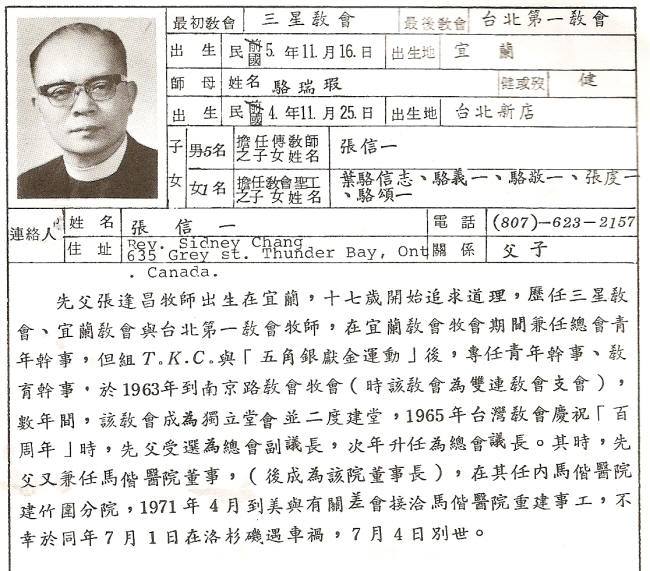 最初教會 三星教會 最後教會 台北第一教會
出生 民前國 5.年11.月16.日 出生地 宜蘭
師母 姓名 駱瑞瑕 健或歿 健
出生 民前國 4.年11.月25.日 出生地 台北新店
子女 男5名 擔任傳教師之子女姓名 張信一
女1名 擔任教會聖工之子女姓名 葉駱信志、駱義一、駱敬一、張虔一、駱頌一
連絡人 姓名 張信一 電話 (807)-623-2157
住址 Rev. Sidney Chang 635 Grey st. Thunder Bay, Ont. Canada. 關係 父子
先父張逢昌牧師出生在宜蘭，十七歲開始追求道理，歷任三星教
會、宜蘭教會與台北第一教會牧師，在宜蘭教會牧會期間兼任總會青
年幹事，但組T.K.C.與「五角銀獻金運動」後，專任青年幹事、教
育幹事，於1963年到南京路教會牧會（時該教會為雙連教會支會），
數年間，該教會成為獨立堂會並二度建堂，1965年台灣教會慶祝「百
周年」時，先父受選為總會副議長，次年升任為總會議長。其時，先
父又兼任馬偕醫院董事，（後成為該院董事長），在其任內馬偕醫院
建竹圍分院，1971年4月到美與有關差會接洽馬偕醫院重建事工，不
幸於同年7月1日在洛杉磯遇車禍，7月4日別世。